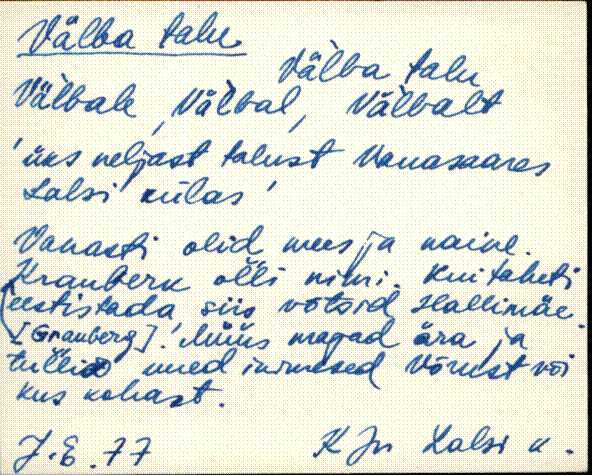 Välba talu
Välba talu
Välbale, Välbal, Välbalt
'üks neljast talust Vanasaares
Lalsi külas'
Vanasti olid mees ja naine.
Kranberk olli nimi. Kui taheti
eestistada siis võtsid Hallimäe.
[Granberg]. Müüs magad ära ja
tullid uued inimesed Võrust või
kus kohast.
J.E. 77
K Jn Lalsi k.